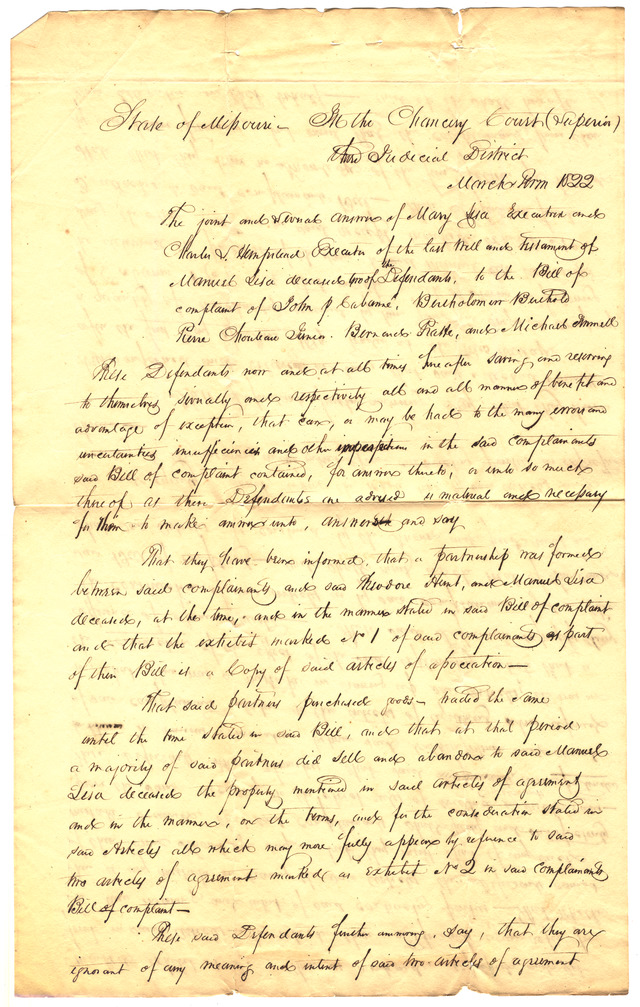 State of Missouri - In the Chancery Court (Superior)
third Judicial District
March Term 1822
The joint and several answer of Mary Lisa Executrix and
Charles S. Hempstead Executor of the last Will and testament of
Manuel Lisa deceased two of the Defendants, to the Bill of
complaint of John P Cabanné, Bartholomew Berthold
Pierre Chouteau Junior. Bernard Pratte, and Michael Immell
These Defendants now and at all times hereafter saving and reserving
to themselves, severally and respectively all and all manner of benefit and
advantage of exception, that can, or may be had to the many errors and
uncertainties insufficiencies and other imperfections in the said complainants
said Bill of complaint contained, for answer thereto, or unto so much
thereof as these Defendants are advised is material and necessary
for them to make answer unto, answer and say
That they have been informed, that a partnership was formed
between said complainants and said Theodore Hunt, and Manuel Lisa
deceased, at the time, and in the manner stated in said Bill of complaint
and that the exhibit marked No 1 of said complainants as part
of their Bill is a Copy of said articles of association -
That said partners purchased goods - traded the same
until the time stated in said Bill, and that at that period
a majority of said partners did sell and abandon to said Manuel
Lisa deceased the property mentioned in said articles of agreement
and in the manner, on the terms, and for the consideration stated in
said Articles all which may more fully appear by reference to said
two articles of agreement marked as exhibit No 2 in said complainants
Bill of complaint -
These said Defendants further answering, say, that they are
ignorant of any meaning and intent of said two articles of agreement